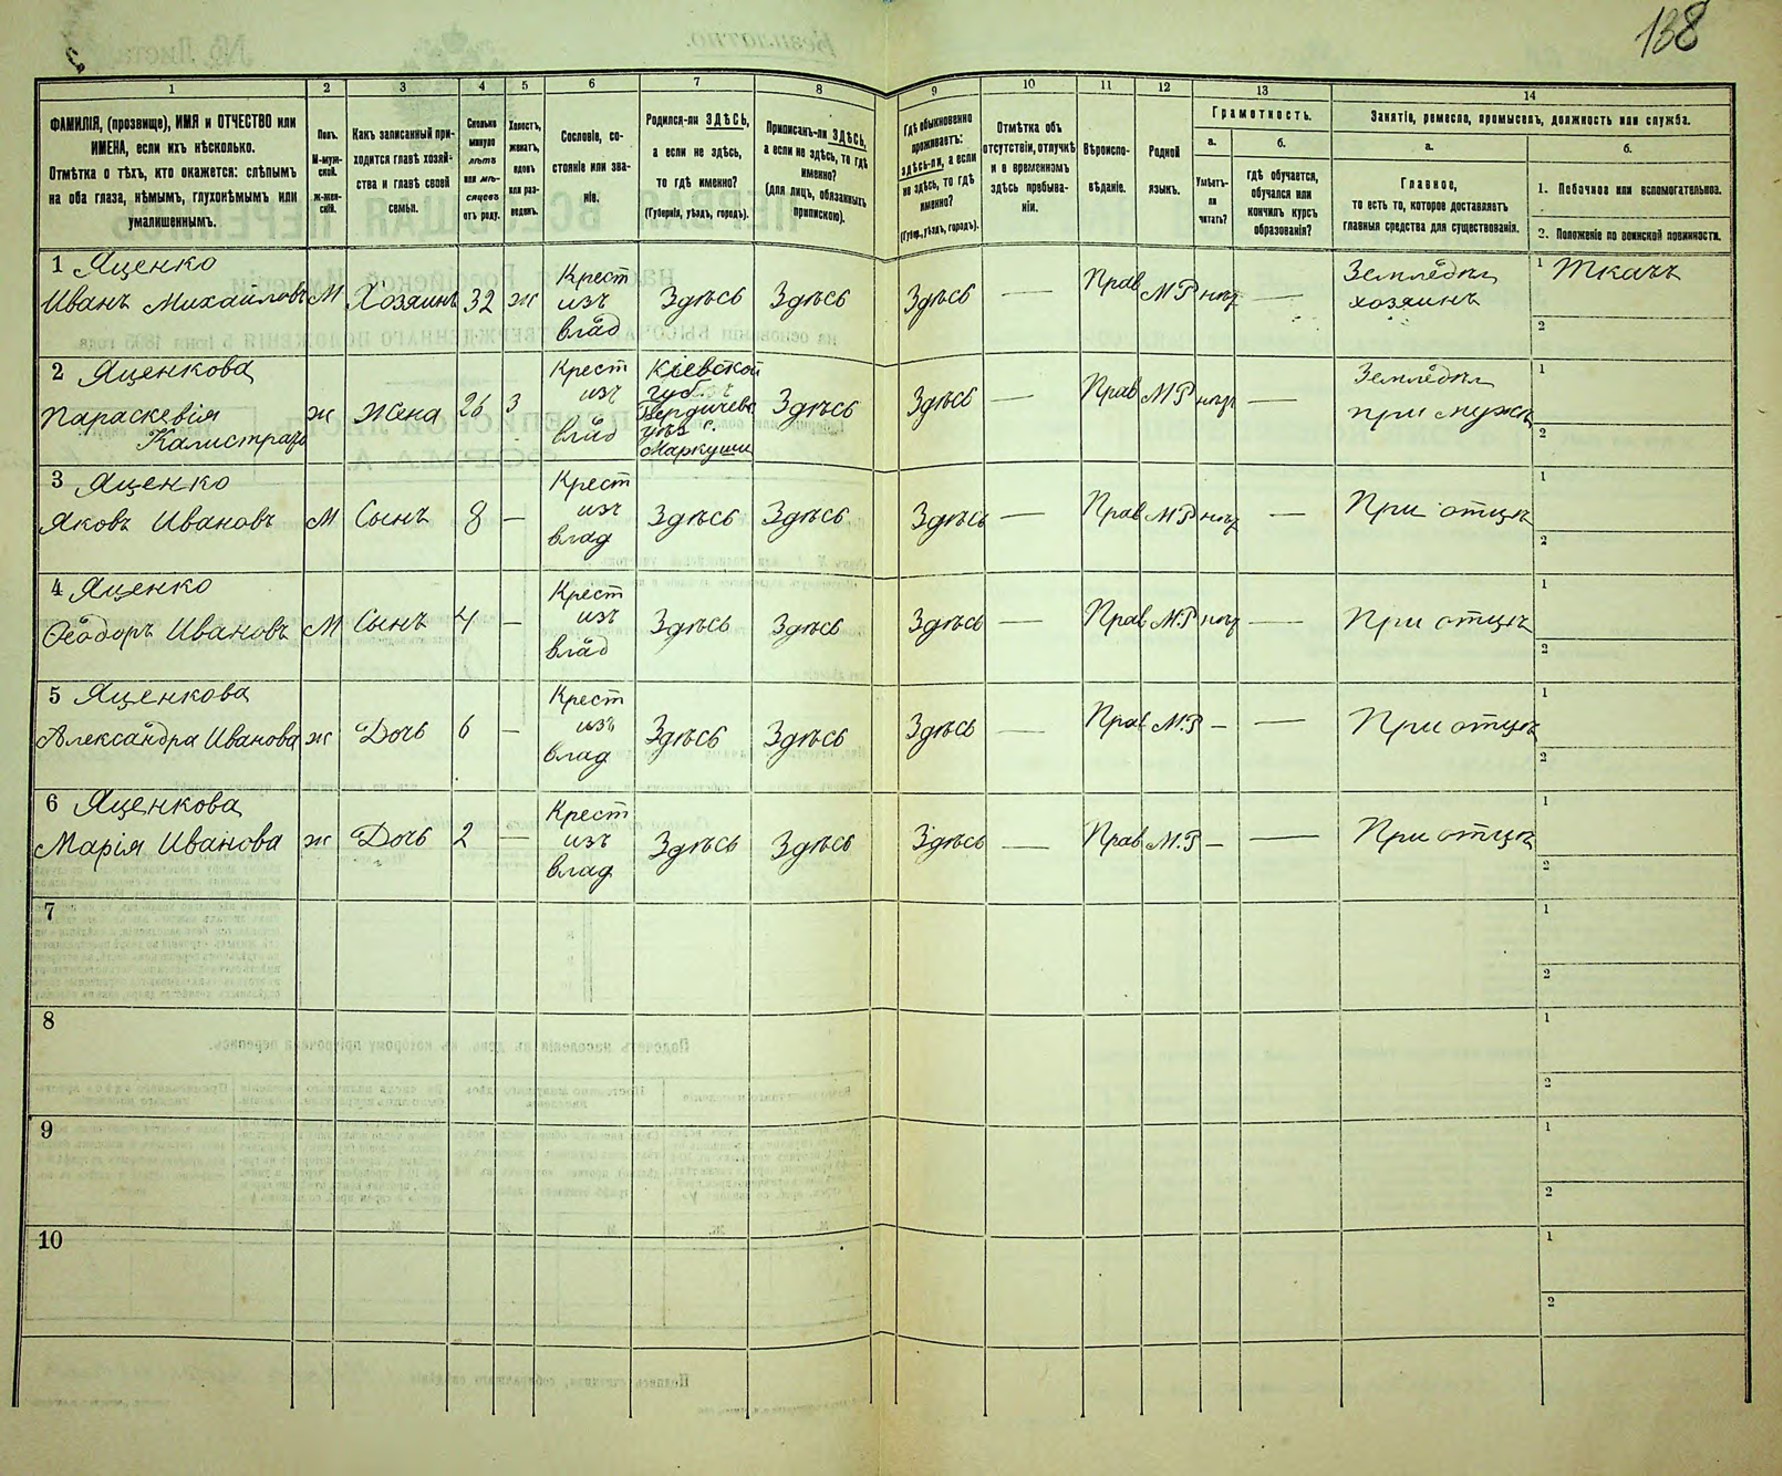 138
1
2
3
4
5
6
7
8
9
10
11
12
13
14
ФАМИЛІЯ, (прозвище), ИМЯ и ОТЧЕСТВО или
ИМЕНА, если ихъ нѣсколько.
Отмѣтка о тѣхъ, кто окажется: слѣпымъ
на оба глаза, нѣмымъ, глухонѣмымъ или
умалишеннымъ.
Полъ.
М-муж-
ской.
ж-жен-
скій.
Какъ записанный при-
ходится главѣ хозяй-
ства и главѣ своей
семьи.
Сколько
минуло
лѣтъ
или мѣ-
сяцевъ
отъ роду.
Холостъ,
женатъ,
вдовъ
или раз-
веденъ.
Сословіе, со-
стояніе или зва-
ніе.
Родился-ли ЗДѢСЬ,
а если не здѣсь,
то гдѣ именно?
(Губернія, уѣздъ, городъ).
Приписанъ-ли ЗДѢСЬ,
а если не здѣсь, то гдѣ
именно?
(для лицъ, обязанныхъ
припискою).
Гдѣ обыкновенно
проживаетъ:
здѣсь-ли, а если
не здѣсь, то гдѣ
именно?
(Губер., уѣздъ, городъ).
Отмѣтка объ
отсутствіи, отлучкѣ
и о временномъ
здѣсь пребыва-
ніи.
Вѣроиспо-
вѣданіе.
Родной
языкъ.
Грамотность.
а.
Умѣетъ-
ли
читать?
б.
гдѣ обучается,
обучался или
кончилъ курсъ
образованія?
Занятіе, ремесло, промыселъ, должность или служба.
а.
Главное,
то есть то, которое доставляетъ
главныя средства для существованія.
б.
1. Побочное или вспомогательное.
2. Положеніе по воинской повинности.
1 Яценко
Иванъ Михайловъ М Хозяинъ 32 ж
Крест
изъ
влад
Здѣсь Здѣсь Здѣсь — Прав М Р нѣтъ —
Земледѣл
хозяинъ
1 Ткачъ
2
2 Яценкова
Параскевія
Калистрат
ж Жена 26 З
Крест
изъ
влад
Кіевской
губ.
Бердичевс
уѣз с.
Маркуши
Здѣсь Здѣсь — Прав М Р нѣтъ —
Земледѣл
при мужѣ
1
2
3 Яценко
Яковъ Ивановъ М Сынъ 8 —
Крест
изъ
влад
Здѣсь Здѣсь Здѣсь — Прав М Р нѣт — При отцѣ
1
2
4 Яценко
Ѳеодоръ Ивановъ М Сынъ 4 —
Крест
изъ
влад
Здѣсь Здѣсь Здѣсь — Прав М.Р нѣт — При отцѣ
1
2
5 Яценкова
Александра Иванова ж Дочь 6 —
Крест
изъ
влад
Здѣсь Здѣсь Здѣсь — Прав М.Р — — При отцѣ
1
2
6 Яценкова
Марія Иванова ж Дочь 2 —
Крест
изъ
влад
Здѣсь Здѣсь Здѣсь — Прав М.Р — — При отцѣ
1
2
7
1
2
8
1
2
9
1
2
10
1
2